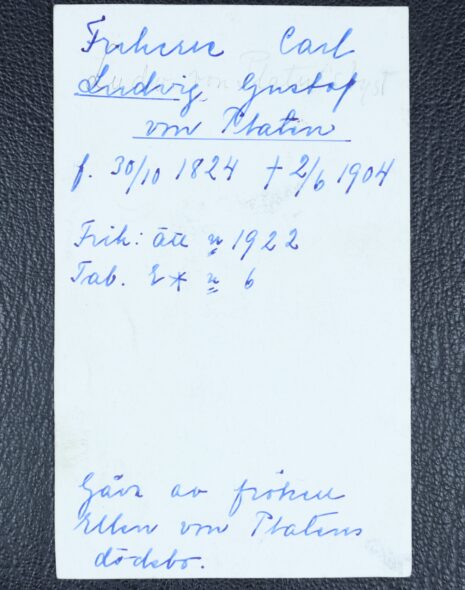 Friherre Carl
Ludvig Gustaf
von Platen
f. 30/10 1824 † 2/6 1904
Frih: ätt n 1922
Tab. n 6
Gåva av fröken
Ellen von Platens
dödsbo.